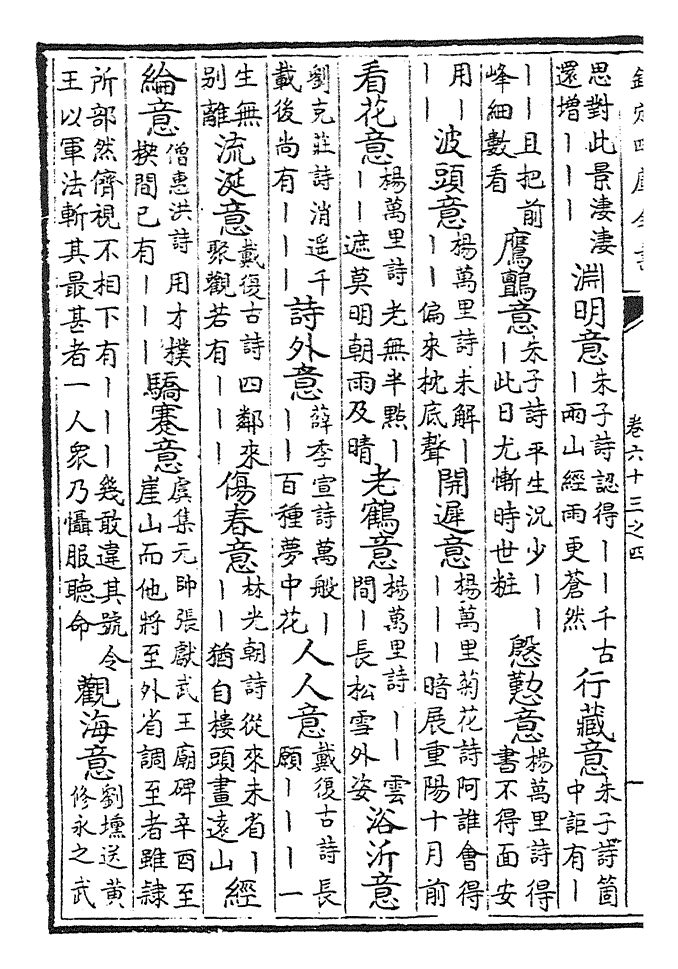 欽定四庫全書
卷六十三之四
思對此景淒淒還增｜｜｜ 淵明意 朱子詩認得｜｜千古｜雨山經雨更蒼然 行藏意 朱子詩箇中詎有｜
｜｜且把前峰細數看 鷹鸇意 朱子詩平生況少｜｜｜此日尤慚時世粧 慇懃意 楊萬里詩得書不得面安
用｜｜｜ 波頭意 楊萬里詩未解｜｜｜偏來枕底聲 開遲意 楊萬里菊花詩阿誰會得｜｜｜暗展重陽十月前
看花意 楊萬里詩老無半點｜｜｜遮莫明朝雨及晴 老鶴意 楊萬里詩｜｜雲間｜長松雪外姿 浴沂意
劉克莊詩消遥千載後尚有｜｜｜ 詩外意 薛季宣詩萬般｜｜｜百種夢中花 人人意 戴復古詩長願｜｜｜一
生無别離 流涎意 戴復古詩四鄰來聚觀若有｜｜｜ 傷春意 林光朝詩從來未省｜｜｜猶自樓頭畫遠山 經
綸意 僧惠洪詩用才樸樕間已有｜｜｜ 驕蹇意 虞集元帥張獻武王廟碑辛酉至崖山而他將至外省調至者雖隸
所部然儕視不相下有｜｜｜幾敢違其號令王以軍法斬其最甚者一人衆乃懾服聽命 觀海意 劉壎送黄修永之武